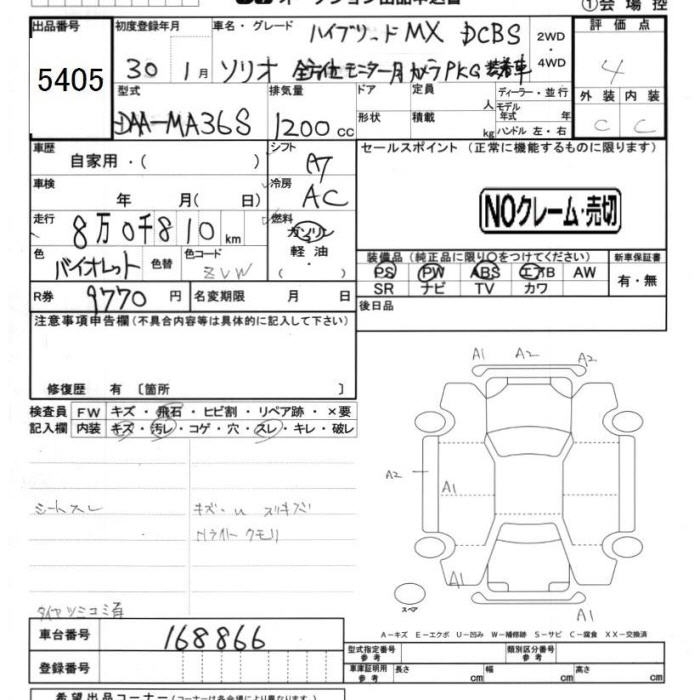 オークション出品申込書
①会場控
出品番号
5405
初度登録年月
30 1月
車名・グレード
ハイブリッド MX DCBS
ソリオ 全方位モニター用カメラPKG装着車
2WD
・
4WD
評価点
4
外装 内装
C C
型式
DAA-MA36S
排気量
1200 cc
ドア
定員
人
形状
積載
kg
ディーラー・並行
モデル
年式 年
ハンドル 左・右
車歴
自家用・( )
シフト
A7
車検
年 月( 日)
冷房
AC
走行
8万0千810 km
燃料
ガソリン
軽油
・
( )
色
バイオレット
色替
色コード
ZVW
R券
9770 円
名変期限 月 日
セールスポイント (正常に機能するものに限ります)
NOクレーム・売切
装備品 (純正品に限り○をつけてください)
PS PW ABS エアB AW
SR ナビ TV カワ
新車保証書
有・無
後日品
注意事項申告欄 (不具合内容等は具体的に記入して下さい)
修復歴 有 〔箇所 〕
検査員 FW キズ・飛石・ヒビ割・リペア跡・×要
記入欄 内装 キズ・汚レ・コゲ・穴・スレ・キレ・破レ
シートスレ
キズ・U スリキズ
Nライトクモリ
タイヤツミコミ有
A1 A2 A2
A2
A1
A1
A1
スペア
A－キズ E－エクボ U－凹み W－補修跡 S－サビ C－腐食 XX－交換済
車台番号
168866
登録番号
型式指定番号
参考
類別区分番号
参考
車庫証明用
参考
長さ cm 幅 cm 高さ cm
希望出品コーナー (コーナーは各会場により異なります)